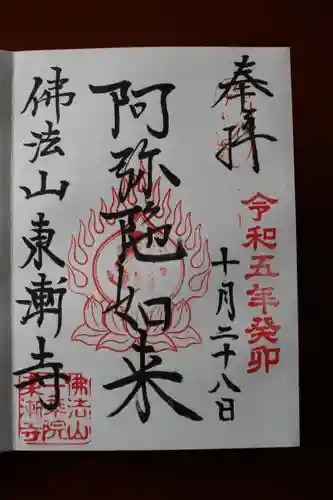 奉拝
令和五年癸卯
十月二十八日
阿弥陀如来
佛法山東漸寺
佛法山
東漸寺